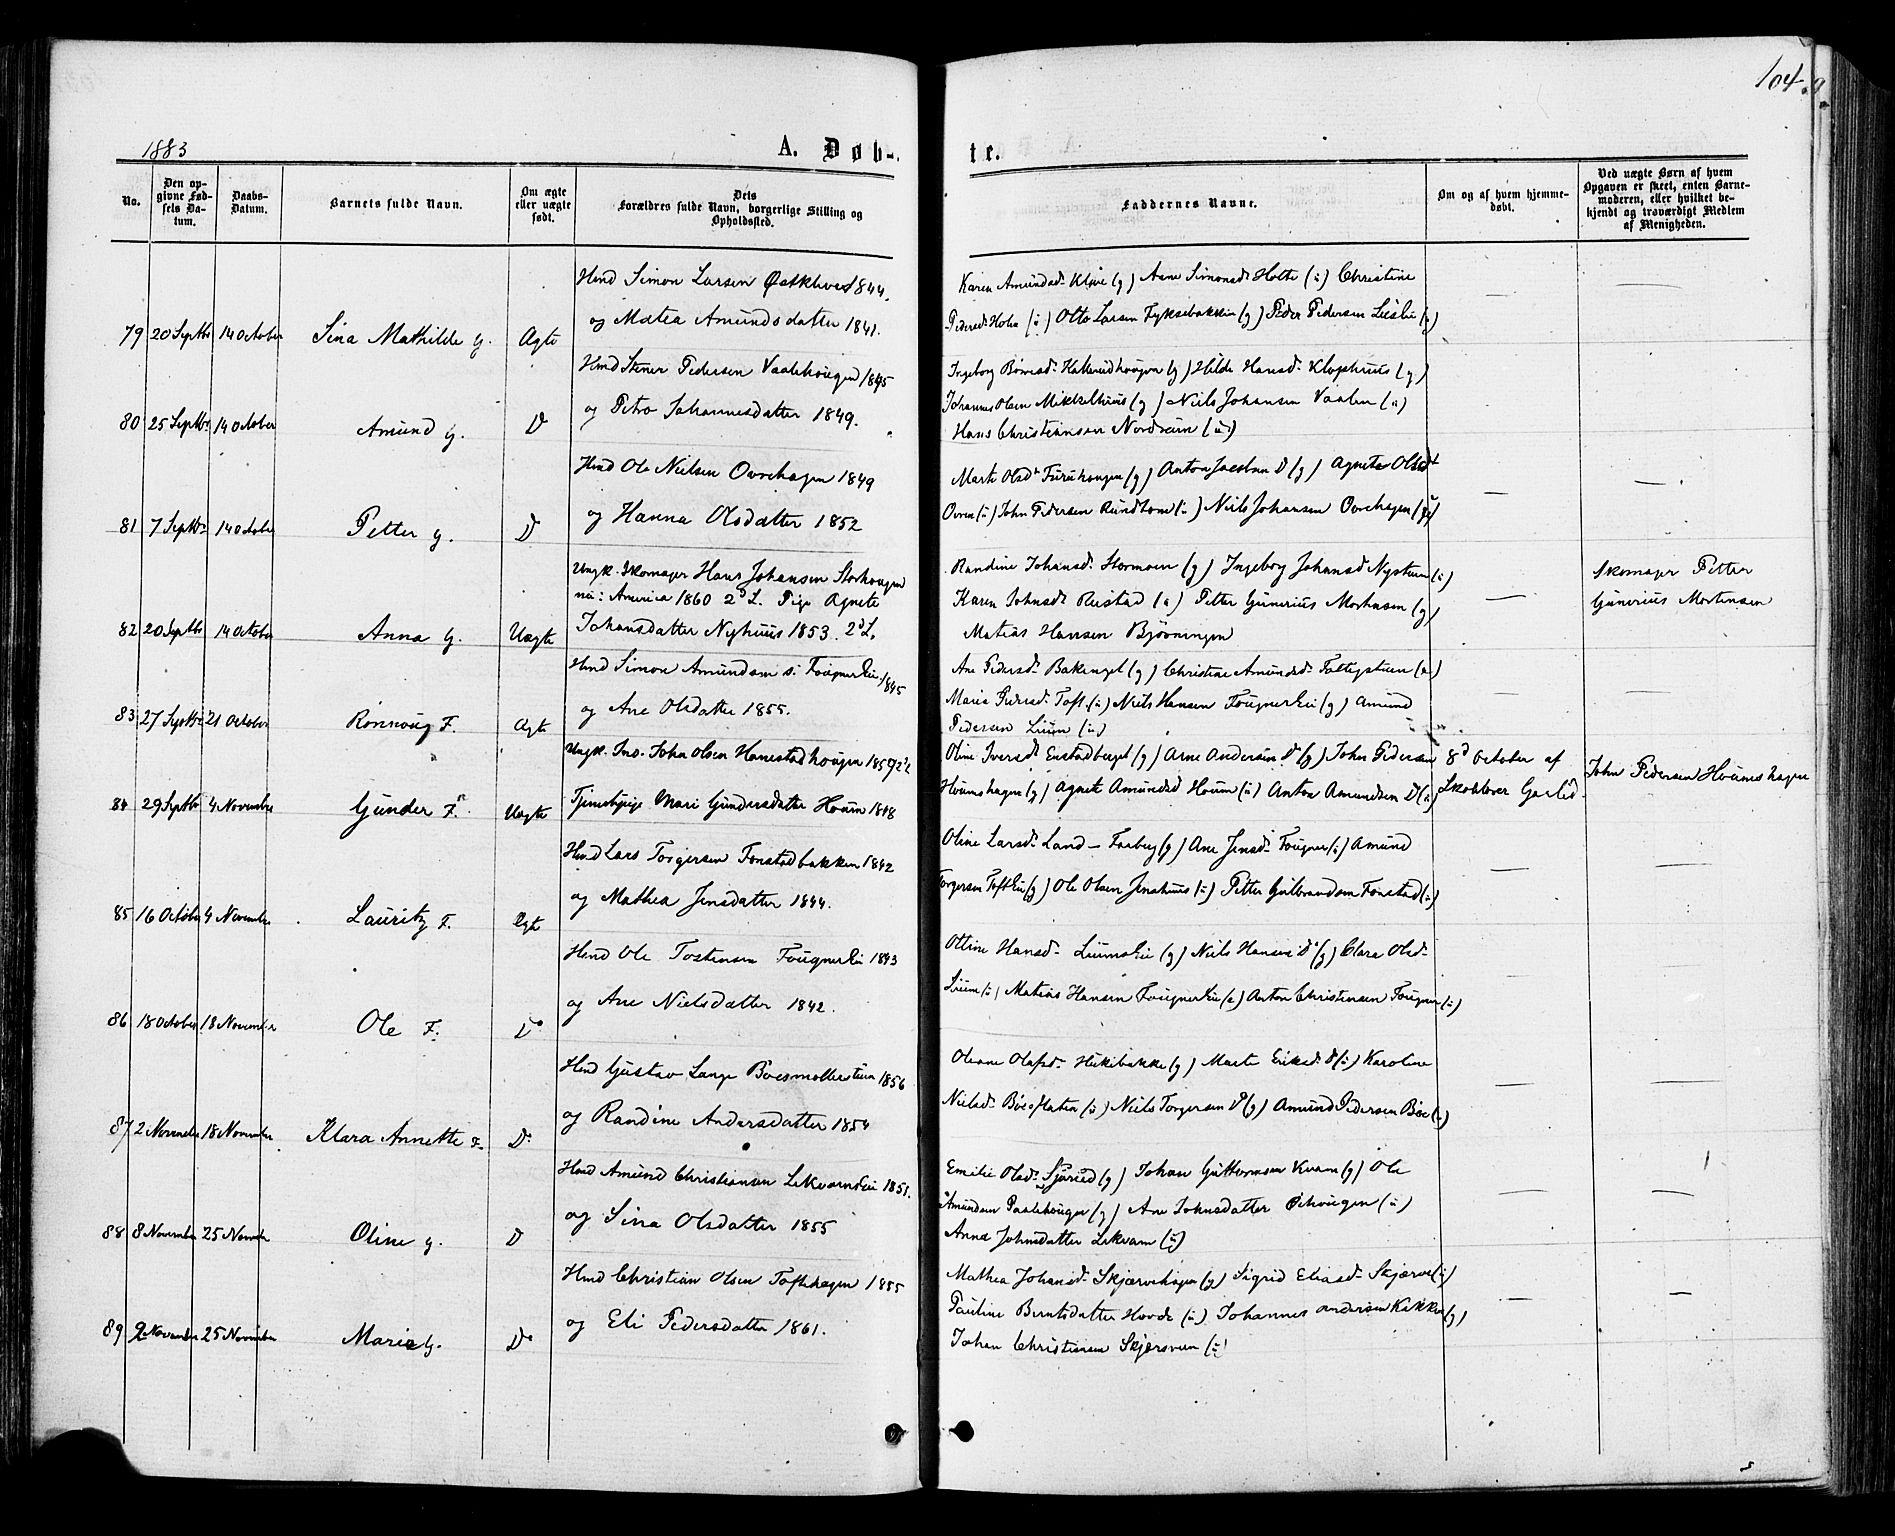 1883
A. Døb-
te.
104.
No.
Den opgivne Fødsels Datum.
Daabs-Datum.
Barnets fulde Navn.
Om ægte eller uægte født.
Dets Forældres fulde Navn, borgerlige Stilling og Opholdssted.
Faddernes Navne.
Om og af hvem hjemmedøbt.
Ved uægte Børn af hvem Opgaven er skeet, enten Barnemoderen, eller hvilket bekjendt og troværdigt Medlem af Menigheden.
Hmd Simon Larsen 1844.
og Matea Amundsdatter 1841.
79 20 Septbr 14 October Sina Mathilde g. Ægte
Karen Amundsd. Kløve (g) Ane Simonsd. Holte (u) Christine
Pedersd. Holen (u) Otto Larsen Fyksebakken (g) Peder Pedersen (u)
Hmd Stener Pedersen Vaalehougen 1845
og Petro Johannesdatter 1849.
80 25 Septbr 14 October Amund g. D
Ingeborg Hansd. Klophuus (g)
Johannes Olsen Mikkelhuus (g) Niels Johansen Vaalen (u)
Hans Christiansen Nordrum (u)
Hmd Ole Nielsen Ovrehagen 1849
og Hanna Olsdatter 1852
81 7 Septbr 14 October Petter g. D
Marte Olsd. Furuhougen (g) Anton Jacobsen D (g) Agnete Olsdt
Ovren (u) John Pedersen Rundtom (u) Niels Johansen Ovrehagen (u)
Ungk. Skomager Hans Johansen Storhougen
nu i America 1860 2d L. Pige Agnete
Johansdatter Nyhuus 1853. 2d L.
82 20 Septbr 14 October Anna g. Uægte
Randine Johansd. Stormoen (g) Ingeborg Johansd Nystuen (u)
Karen Johnsd. Rustad (u) Petter Gunerius Mortensen (g)
Matias Hansen Bjørningen
Skomager Petter
Gunerius Mortensen
Hmd Simon Amundsen s. Fougnerlie 1845
og Ane Olsdatter 1855.
83 27 Septbr 21 October Rønnoug F. Ægte
Ane Pedersd. (g) Christine Amundsd. (u)
Maria Pedersd. Toft (u) Niels Hansen Fougnerlie (g) Amund
Pedersen Lium (u)
Ungk. Ind. John Olsen Hanestadhougen 1859
Tjenestepige Mari Gundersdatter Houm 1848
84 29 Septbr 4 Novembr Gunder F. Uægte
Oline Iversd. Enstadberget (g) Arne Andersen D (g) John Pedersen
Houmshagen (g) Agnete Amundsd Houm (u) Anton Amundsen D (u)
8d October af
Skolelærer Garlid
John Pedersen Houmshagen
Hmd Lars Torgersen Fonstadbakken 1842
og Mathea Jensdatter 1844.
85 16 October 4 Novembr Lauritz F. Ægte
Oline Larsd. Land - Faaberg (g) Ane Jensd. Fougner (u) Amund
Torgersen Toftlie (g) Ole Olsen Jenshuus (u) Petter Gulbrandsen Fonstad (u)
Hmd Ole Tostensen Fougnerlie 1843
og Ane Nielsdatter 1842.
86 18 October 18 November Ole F. Do
Oline Hansd. Liumslie (g) Niels Hansen D (g) Clara Olsd.
Lium (u) Matias Hansen Fougnerlie (u) Anton Christensen Fougner (u)
Hmd Gustav Lange Boesmøllerstuen 1856
og Randine Andersdatter 1854
87 2 November 18 November Klara Annette F. D.
Oleane Olafsd. Hikebakke (g) Marte Eriksd. D (u) Karoline
Nielsd. (u) Niels Torgersen D (g) Amund Pedersen Bøe (u)
Hmd Amund Christiansen Lekvamslie 1851.
og Sina Olsdatter 1855
88 8 November 25 Novembr Oline g. D
Emilie Olsd. (g) Johan Guttormsen Kvam (g) Ole
Amundsen Paalehougen (g) Ane Johnsdatter (u)
Anne Johnsdatter Lekvam (u)
Hmd Christian Olsen Toftehagen 1855
og Eli Pedersdatter 1861.
89 9 November 25 November Marie g. Do
Mathea Johansd. Skjærvehagen (g) Sigrid Eliasd. Skjærve (u)
Pauline Berntsdatter Hovde (u) Johannes Andersen Kakken (g)
Johan Christiansen (u)